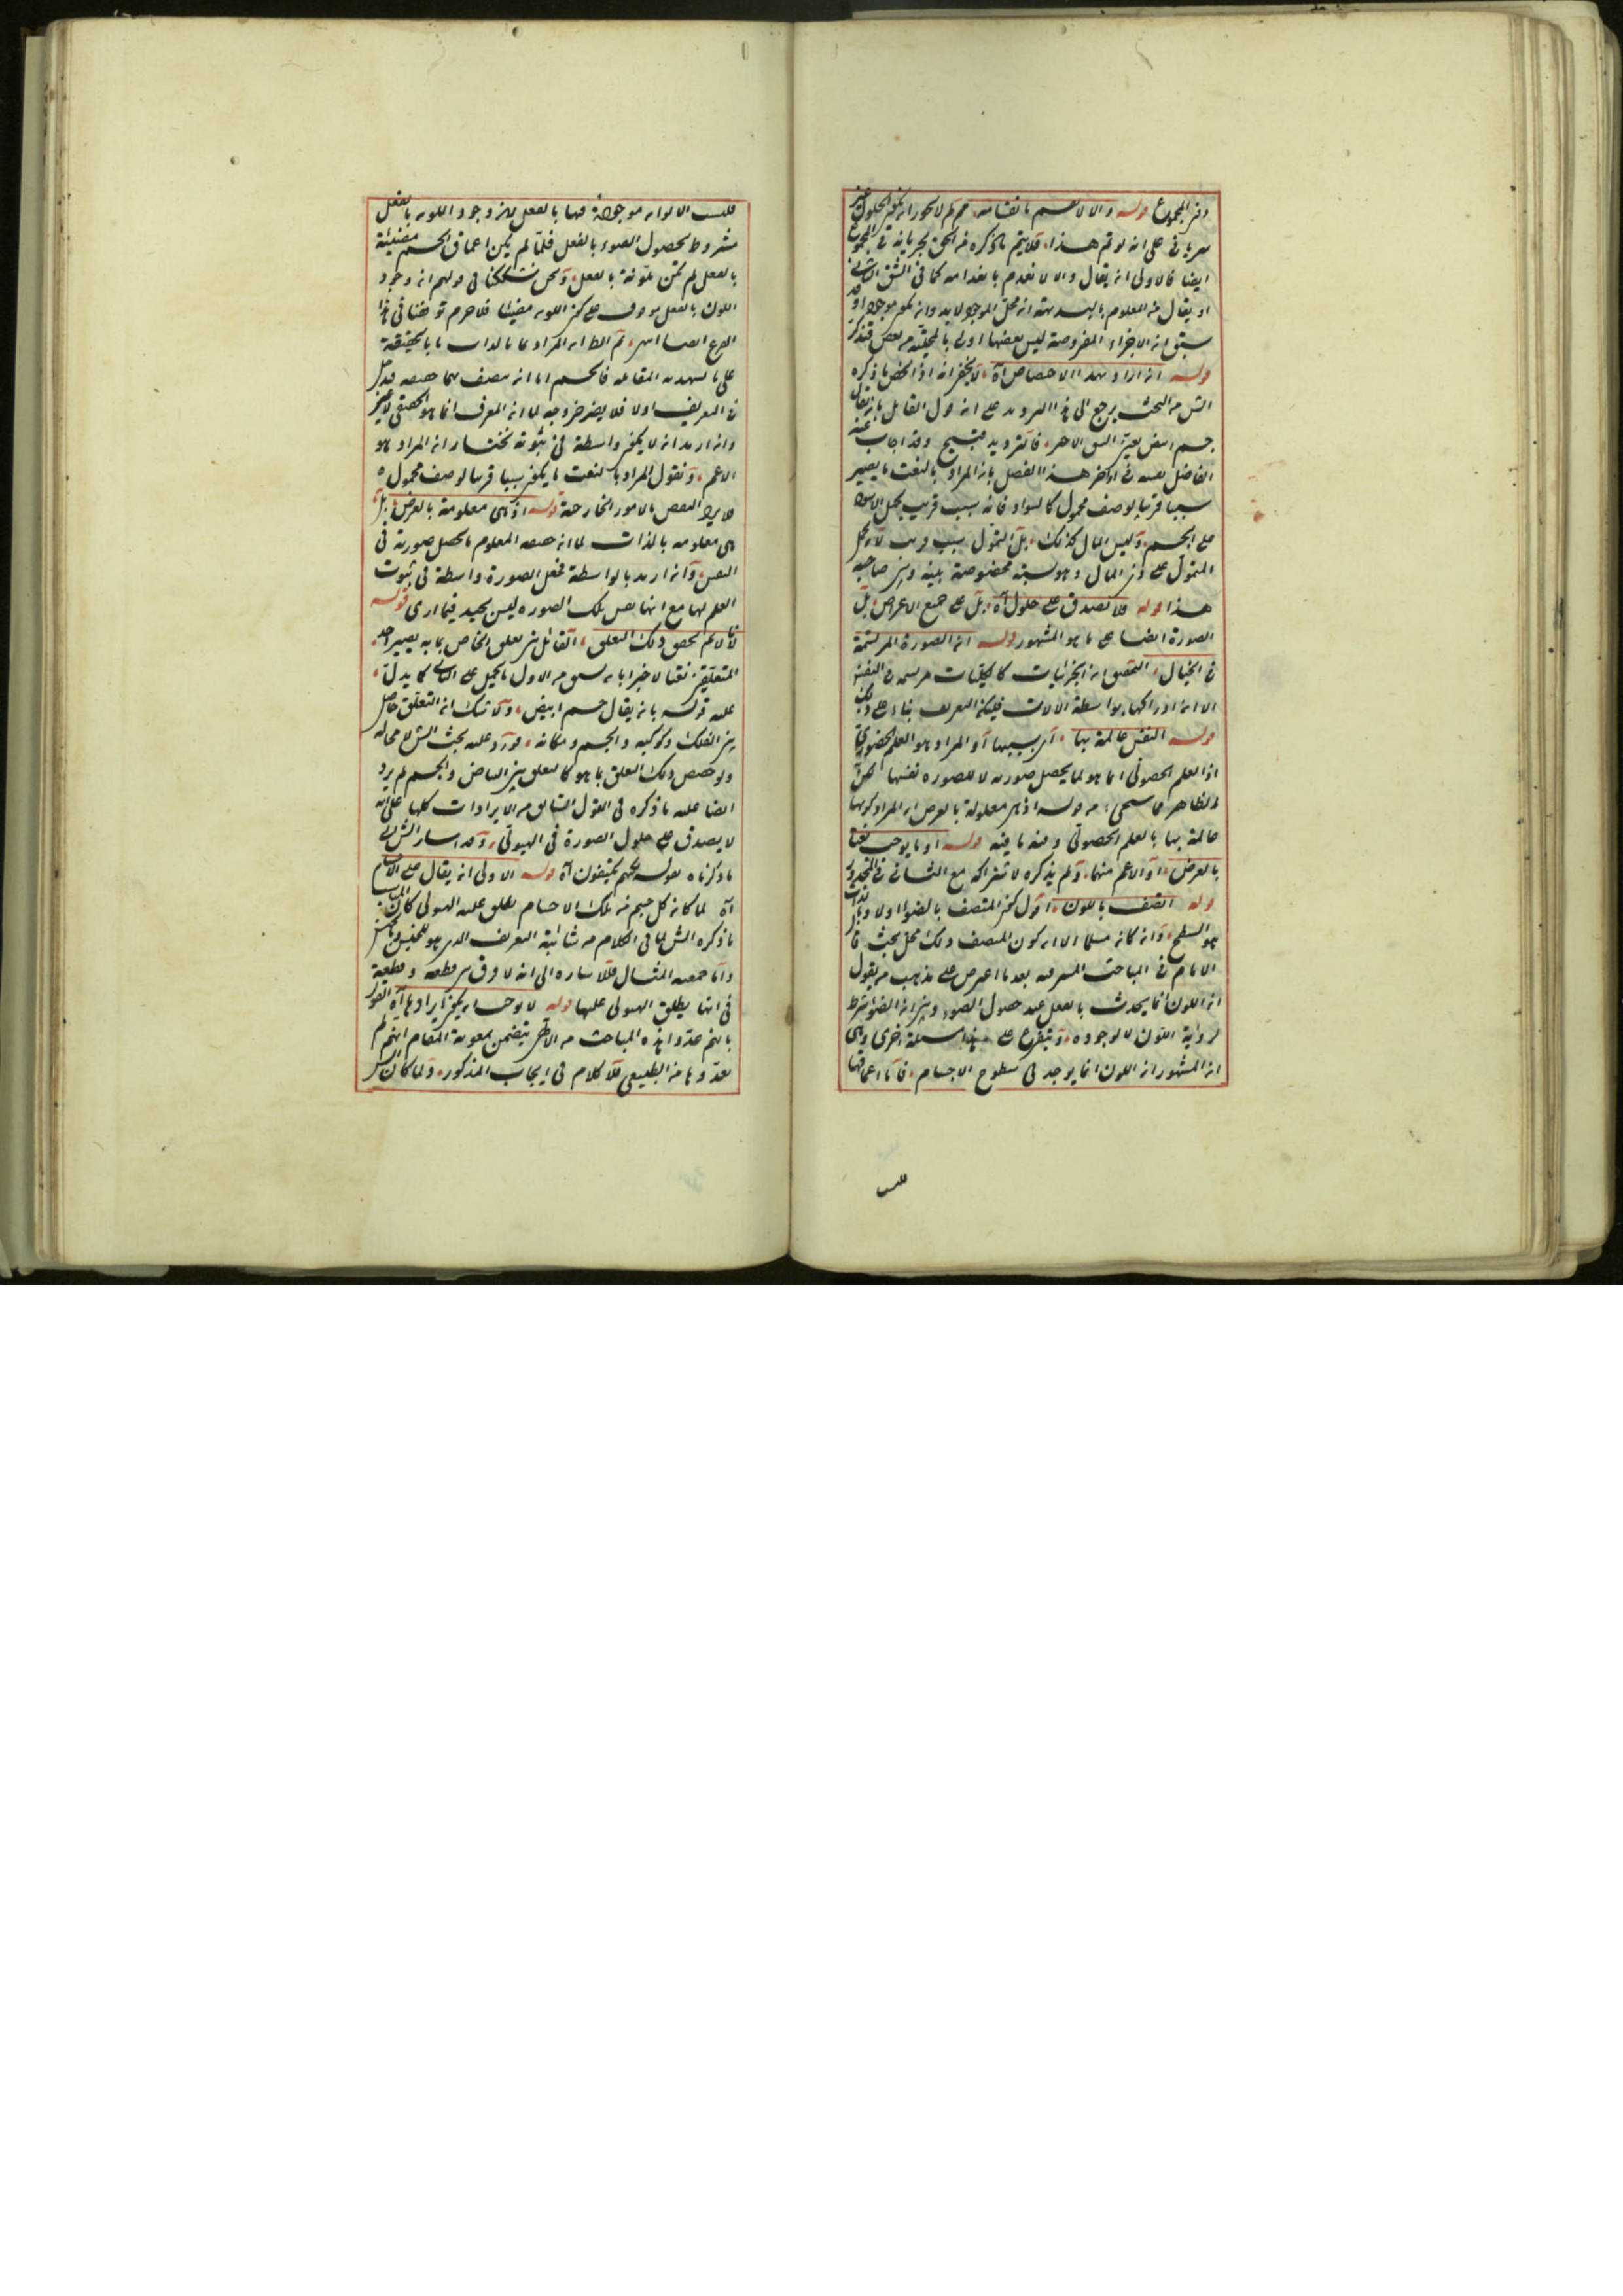 وفى المجموع قوله والا لانقسم بانقسامه لم لا يجوز ان يكون الحلول غير
سريانى على انه لو تم هذا فلا يتم ما ذكره من الحق بجريانه فى المجموع
ايضا فالاولى ان يقال والا لانعدم بانعدامه كما فى الشق الثانى
او يقال من المعلوم بالبديهة ان محل الموجود لابد وان يكون موجودا وقد
سبق ان الاجزاء المفروضة ليس بعضها اولى بالمحلية من بعض فتذكر
قوله انه اراد بهذا الاختصاص آه لا يخفى انه اذا لخص ما ذكره
الش من البحث يرجع الى هذا الترديد على ان قول القائل بان يقال
جسم ابيض يعين الشق الاخر فالترديد قبيح وقد اجاب عنه
الفاضل نفسه فى اواخر هذا الفصل بان المراد بالنعت ما يصير
سببا قريبا لوصف محمول كالسواد فانه سبب قريب لحمل الاسود
على الجسم وليس المال كذلك بل التمول سبب قريب لان يحمل
المتمول على ذى المال وهو نسبة مخصوصة بينه وبين صاحبه
هذا قوله فلا تصدق على حلول آه بل على جميع الاعراض بل
الصورة ايضا على ما هو المشهور قوله ان الصورة المرتسمة
فى الخيال التحقيق ان الجزئيات كالكليات مرتسمة فى النفس
الا ان ادراكها بواسطة الآلات فليكن التعريف بناء على ذلك
قوله النفس عالمة بها اى بسببها او المراد هو العلم الحضورى
اذ العلم الحصولى انما هو لما يحصل صورته لا للصورة نفسها لكن
الظاهر مما سيجئ من قوله اذ هى معلومة بالعرض ان المراد كونها
عالمة بها بالعلم الحصولى وفيه ما فيه قوله او ما يوجب نعتا
بالعرض او الاعم منهما ولم يذكره لاشتراكه مع الثانى فى المحذور
قوله اتصف باللون اقول كون المتصف بالضوء اولا وبالذات
هو السطح وان كان مسلما الا ان كون المتصف ذلك محل بحث قال
الامام فى المباحث المشرقية بعد ما اعترض على مذهب من يقول
ان اللون انما يحدث بالفعل عند حصول الضوء وبين ان الضوء شرط
لرؤية اللون لا لوجوده ويتفرع على هذا مسئلة اخرى وهى
ان المشهور ان اللون انما يوجد فى سطوح الاجسام فاما اعماقها
فليست
فليست الالوان موجودة فيها بالفعل لان وجود اللون بالفعل
مشروط بحصول الضوء بالفعل فلما لم يكن اعماق الجسم مضيئة
بالفعل لم تكن ملونة بالفعل ونحن شككنا فى قولهم ان وجود
اللون بالفعل موقوف على كون اللون مضيئا فلا جرم توقفنا فى هذا
الفرع ايضا انتهى ثم الظ ان المراد بما بالذات ما بالحقيقة
على ما يشهد به المقابلة فالجسم اما انه متصف بهما حقيقة فدخل
فى التعريف اولا فلا يضر خروجه لما ان المعرف انما هو الحقيقى لا غير
وان اريد انه لا يكون واسطة فى ثبوته نختار ان المراد هو
الاعم ونقول المراد بالنعت ما يكون سببا قريبا لوصف محمول
فلا يرد النقض بالامور الخارجة قوله اذ هى معلومة بالعرض بل
هى معلومة بالذات لما ان حقيقة المعلوم ما يحصل صورته فى
النفس وان اريد بالواسطة فجعل الصورة واسطة فى ثبوت
العلم لها مع انها نفس تلك الصورة ليس بجيد فيما ارى قوله
لانا لانم تحقق ذلك التعلق القائل بين تعلق الخاص بما به يصير احد
المتعلقين نعتا لآخر اما ان يشتق من الاول ما يحمل على الثانى كما يدل
عليه قوله بان يقال جسم ابيض ولا شك ان التعلق حاصل
بين الفلك وكوكبه والجسم ومكانه فورد عليه بحث الش لا محالة
ولو خصص ذلك التعلق بما هو كالتعلق بين البياض والجسم لم يرد
ايضا عليه ما ذكره فى القول السابق من الايرادات كلها على انه
لا يصدق على حلول الصورة فى الهيولى وقد اشار الش الى
ما ذكرناه بقوله لكنهم يكتفون آه قوله الاولى ان يقال على الاجسام
آه لما كان كل جسم من تلك الاجسام يطلق عليه الهيولى كان المناسب
ما ذكره الش لما فى الكلام من شائبة التعريف الذى هو للجنس وبالجنس
واما جمعية المثال فللاشارة الى انه لا فرق بين قطعة وقطعة
فى انها يطلق الهيولى عليها قوله لا يوجب ان يكون ايرادها آه القول
بانهم عدوا هذه المباحث من الالهى يتضمن بمعونة المقام انهم لم
يعدوها من الطبيعى فلا كلام فى ايجاب المذكور ولما كان الش